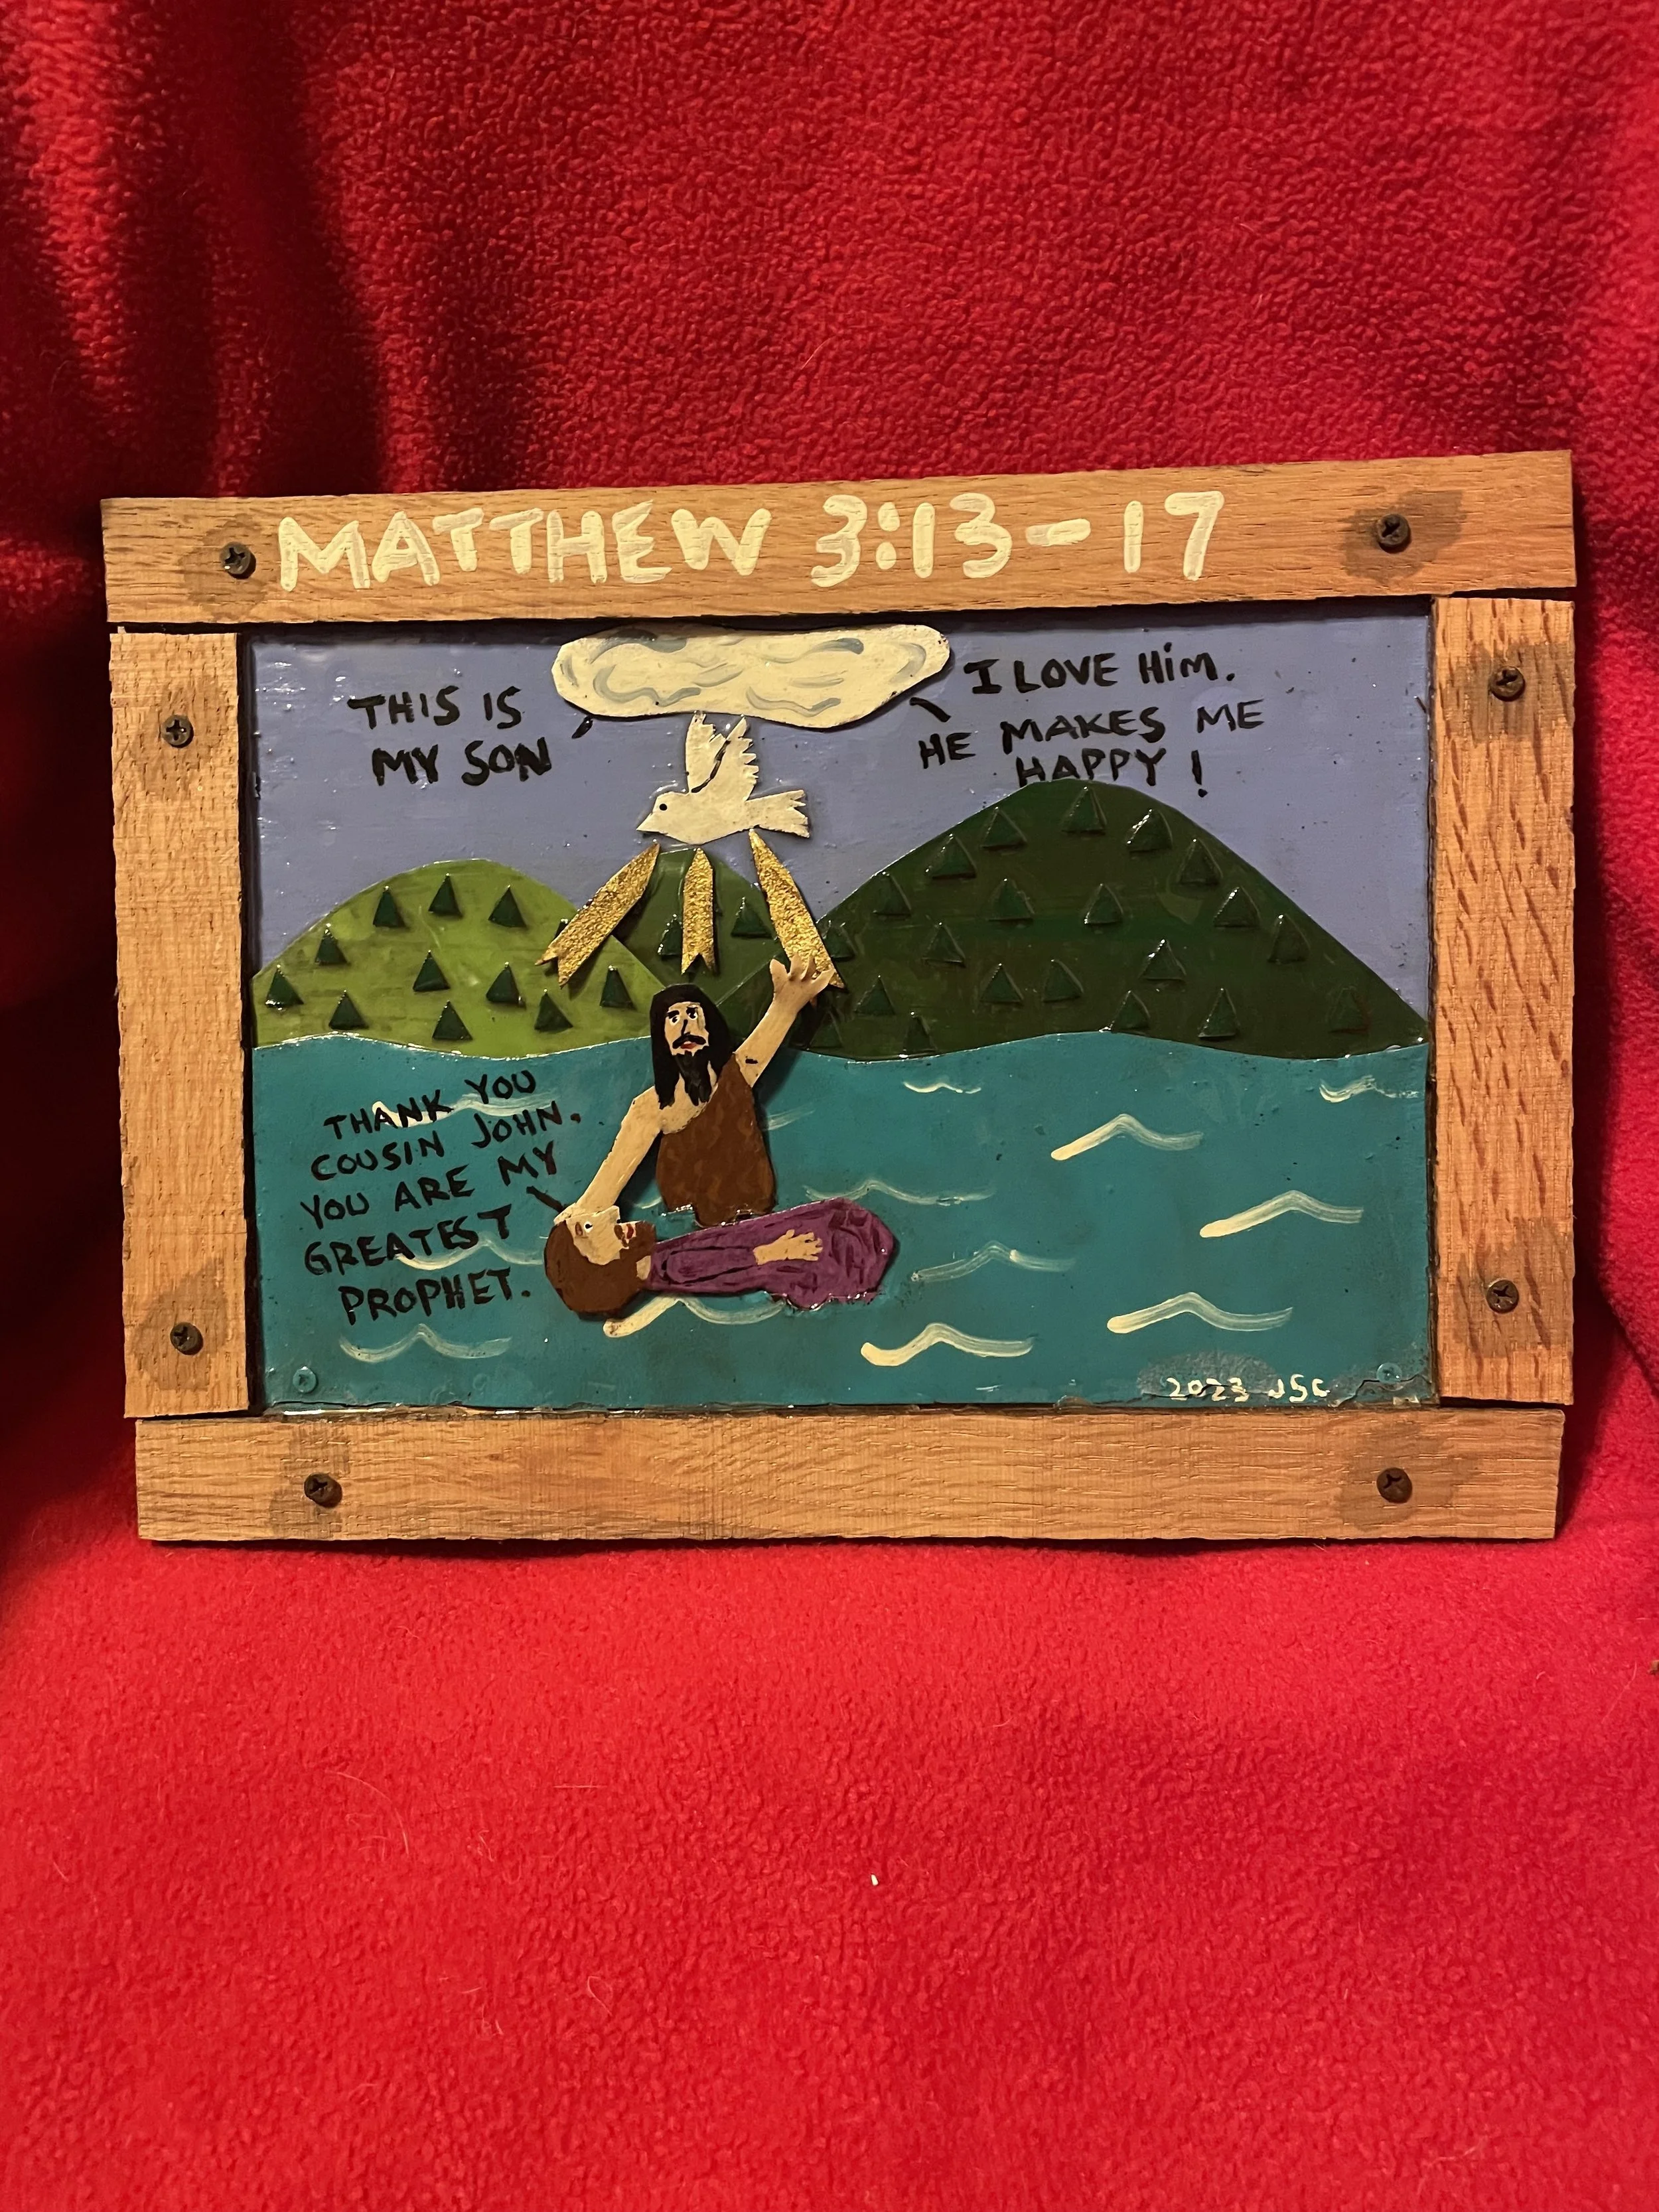 MATTHEW 3:13-17
THIS IS
MY SON
I LOVE HiM.
HE MAKES ME
HAPPY!
THANK YOU
COUSIN JOHN.
YOU ARE MY
GREATEST
PROPHET.
2023 JSC